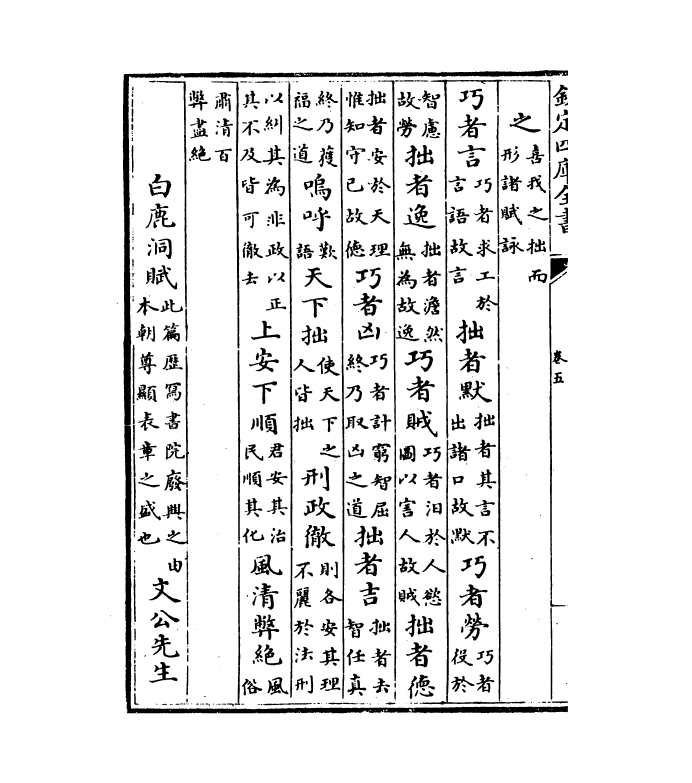 欽定四庫全書 卷五
之喜我之拙而形諸賦詠
巧者言巧者求工於言語故言拙者默拙者其言不出諸口故默巧者勞巧者役於
智慮故勞拙者逸拙者澹然無為故逸巧者賊巧者汨於人慾圖以害人故賊拙者德
拙者安於天理惟知守已故德巧者凶巧者計窮智屈終乃取凶之道拙者吉拙者去智任真
終乃獲福之道嗚呼歎語天下拙使天下之人皆拙刑政徹則各安其理不麗於法刑
以糾其為非政以正其不及皆可徹去上安下順君安其治民順其化風清弊絶風俗
肅清百弊盡絶
白鹿洞賦此篇歴寫書院廢興之由本朝尊顯表章之盛也文公先生